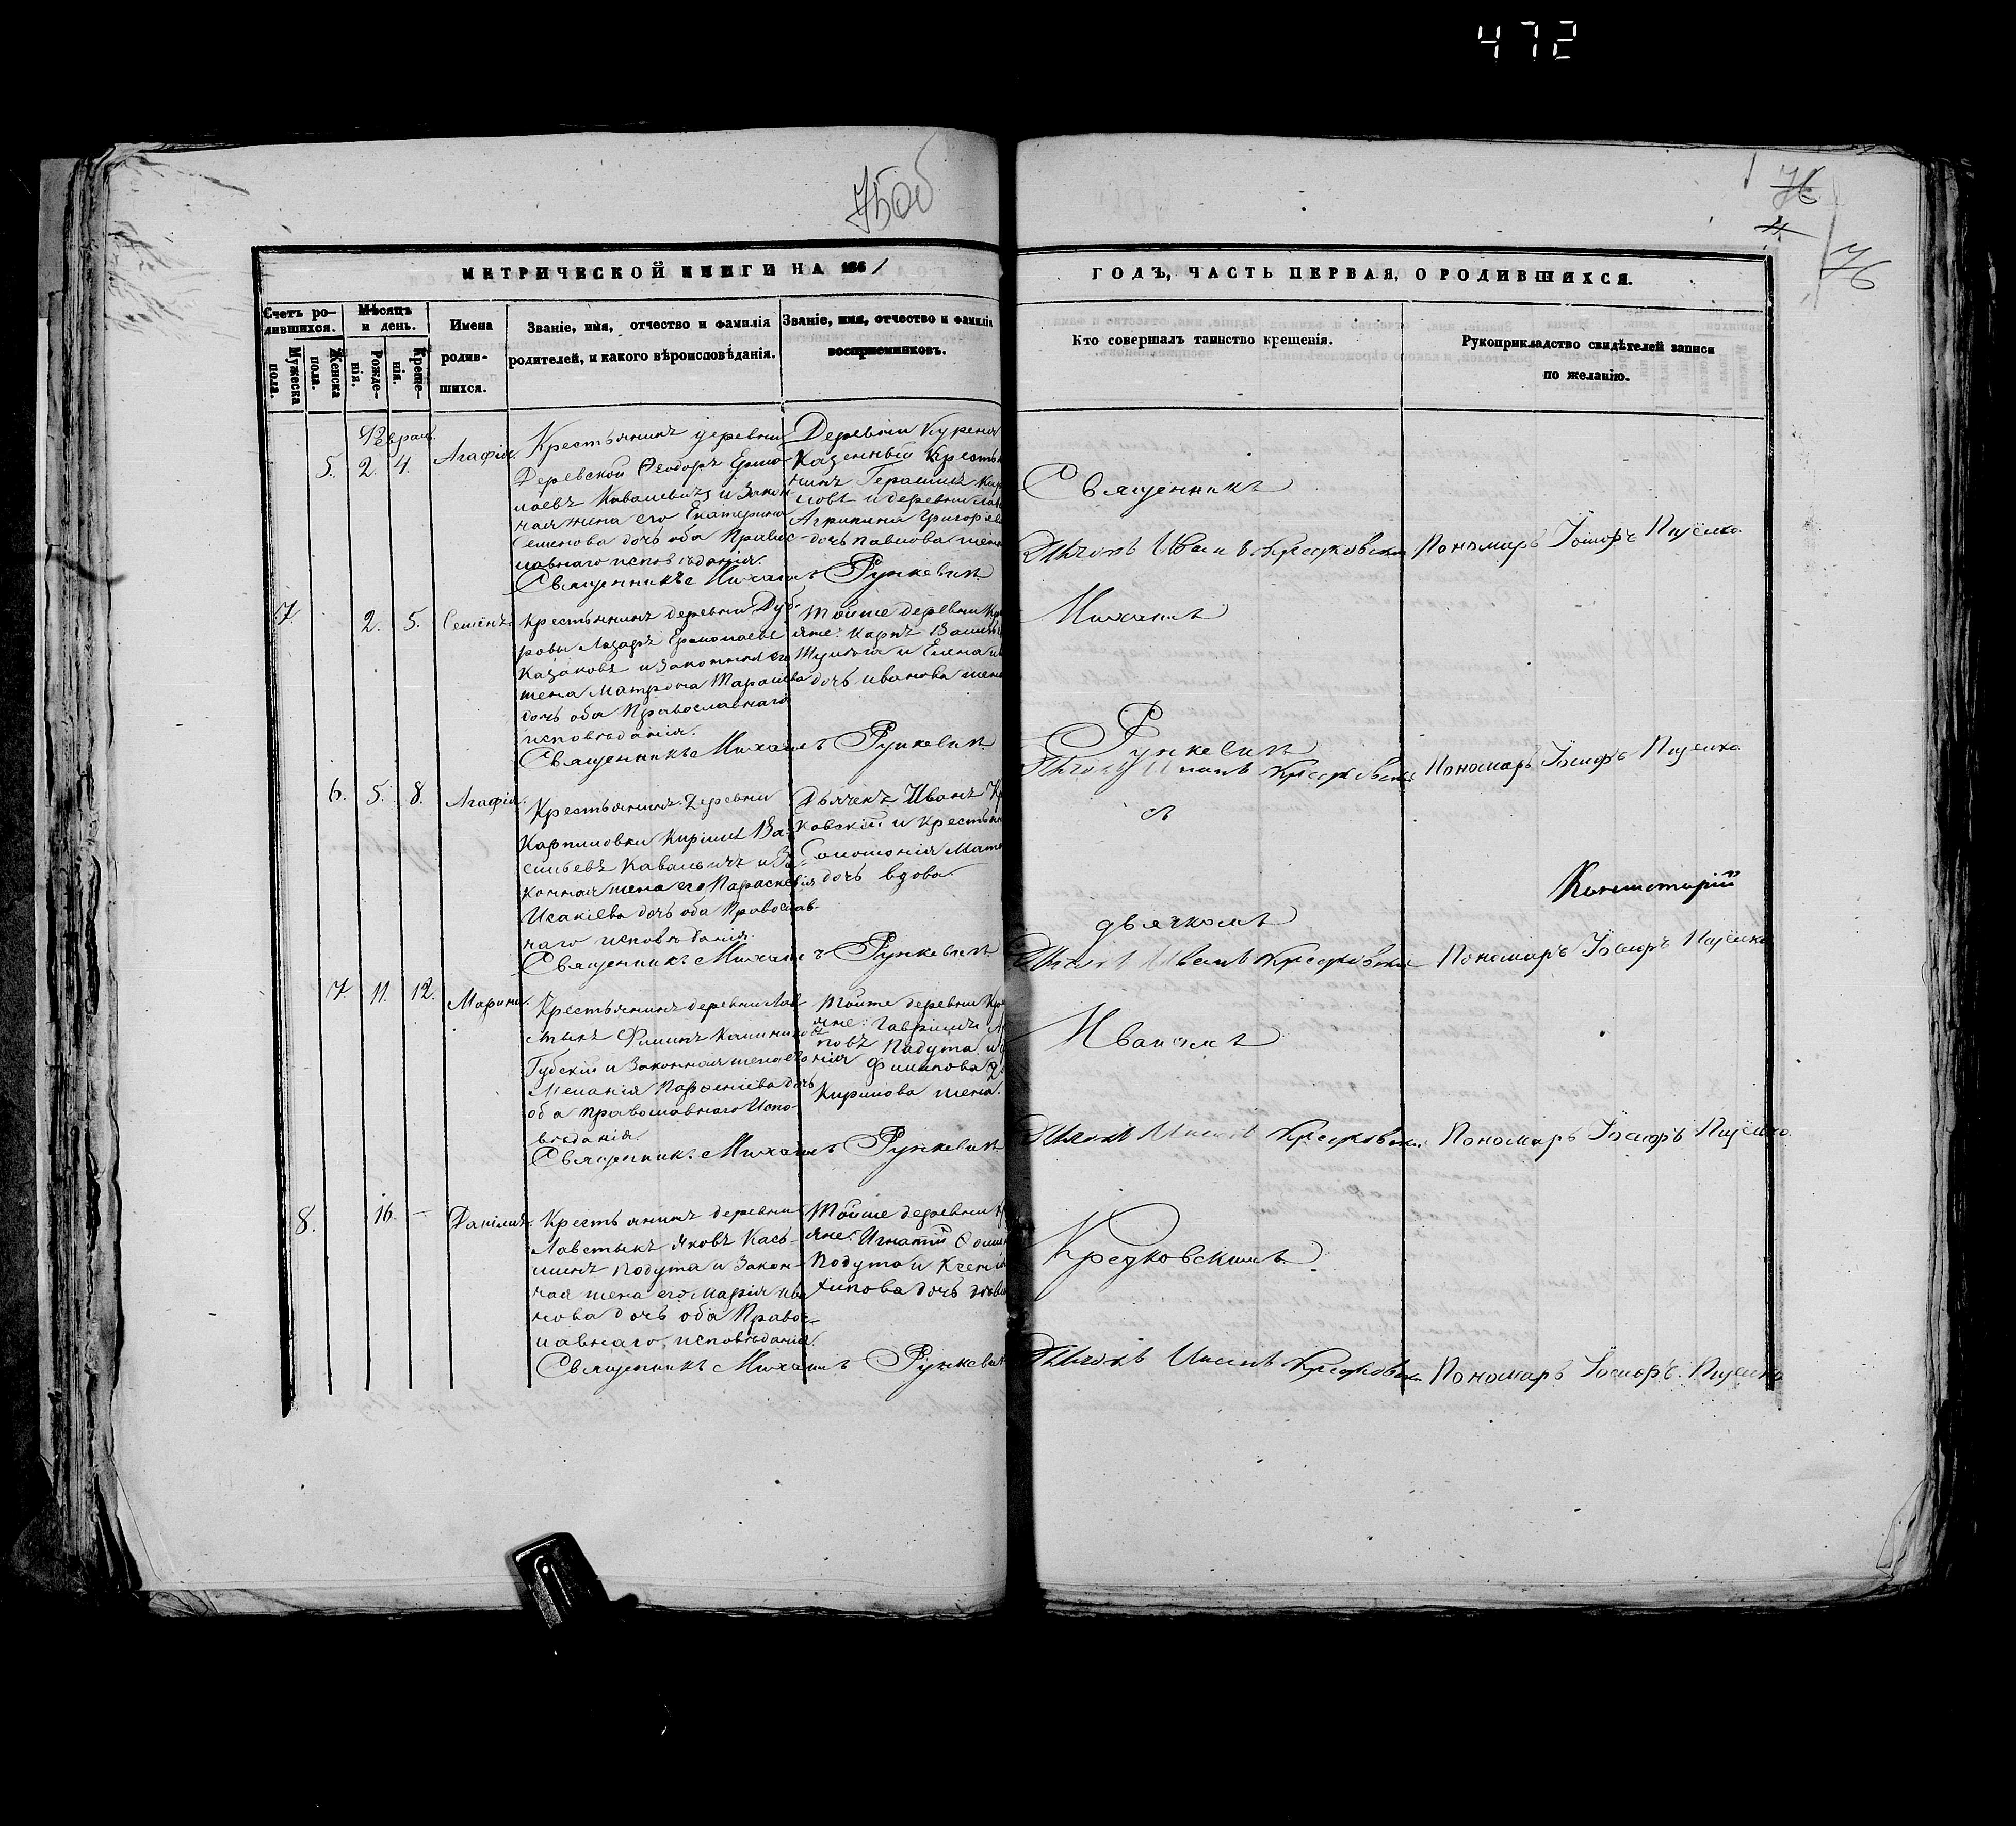 472
75об
76
4.
76
МЕТРИЧЕСКОЙ КНИГИ НА 1861
ГОДЪ, ЧАСТЬ ПЕРВАЯ, О РОДИВШИХСЯ.
Счетъ ро-
дившихся.
Мужеска
пола.
Женска
пола.
Мѣсяцъ
и день.
Рожде-
нія.
Креще-
нія.
Имена
родив-
шихся.
Званіе, имя, отчество и фамилія
родителей, и какого вѣроисповѣданія.
Званіе, имя, отчество и фамилія
воспріемниковъ.
Кто совершалъ таинство крещенія.
Рукоприкладство свидѣтелей записи
по желанію.
Феврал.
5. 2. 4. Агафія.
Крестьянинъ деревни
Деревской Ѳеодоръ Ермо-
лаевъ Ковалевичъ и закон-
ная жена его Екатерина
Семенова дочь оба Правос-
лавнаго исповѣданія.
Деревни Курена
Казенный Кресть
нинъ Герасимъ Кир
ловъ и деревни
Агрипина Григорьева
дочь Павлова жена
Священникъ Михаилъ Рункевичъ
Священникъ
Дьячокъ Иванъ Кречковскій
Пономарь Іосифъ Пщёлко
7. 2. 5. Семёнъ.
Крестьянинъ деревни Дуб-
ровы Лазаръ Ермолаевъ
Казаковъ и законная его
жена Матрона Тарасіева
дочь оба Православнаго
исповѣданія.
Тойже деревни Кр
яне: Карпъ Василь
и Елена
дочь Иванова жена
Священникъ Михаилъ Рункевичъ
Михаилъ
Рункевичъ
Дьячокъ Иванъ Кречковскій
Пономарь Іосифъ Пщелко
6. 5. 8. Агафія.
Крестьянинъ деревни
Карпиловки Кирилъ Ва-
сильевъ Ковальичъ и за-
конная жена его Параскевія
Исакіева дочь оба Православ-
наго исповѣданія.
Дьячекъ Иванъ Кр
ковскій и Крестьян
Соломонія Мат
дочь вдова.
Священникъ Михаилъ Рункевичъ
съ
дьячкомъ
Консисторій
Дьячокъ Иванъ Кречковскій
Пономарь Іосифъ Пщёлко
7. 11. 12. Марина.
Крестьянинъ деревни Лав-
стыкъ Филипъ Калинико
Губскій и законная жена его
Меланія Парѳеніева дочь
оба православнаго Испо-
вѣданія.
Тойже деревни Кре
яне: Гавріилъ
повъ Падута и
нія Филипова д
Кирилова жена.
Священникъ Михаилъ Рункевичъ
Иваномъ
Дьячокъ Иванъ Кречковскій
Пономарь Іосифъ Пщёлко.
8. 16. — Даніилъ.
Крестьянинъ деревни
Лавстыкъ Яковъ Кась-
яновъ Подута и закон-
ная жена его Марія Ива
нова дочь оба Правос-
лавнаго исповѣданія.
Тойже деревни К
яне: Игнатій Ѳоми
Подута и Ксенія
хипова дочь
Священникъ Михаилъ Рункевич
Кречковскимъ.
Дьячокъ Иванъ Кречковскій
Пономарь Іосифъ Пщелко